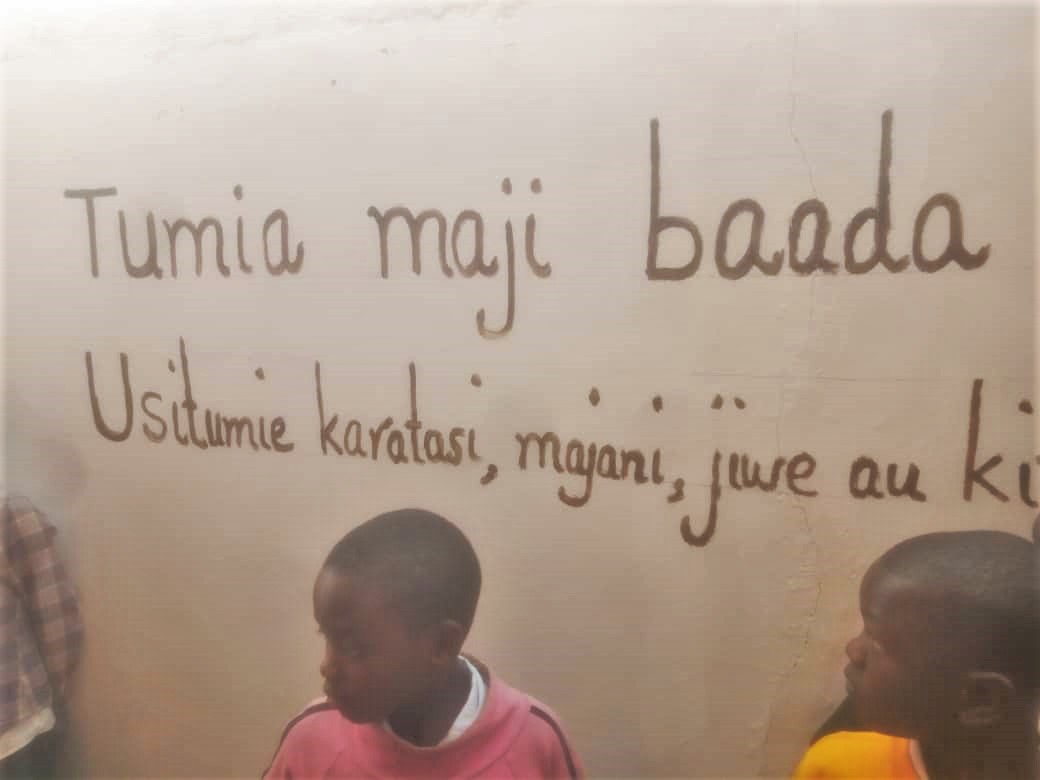 Tumia maji baada
Usitumie karatasi, majani, jiwe au